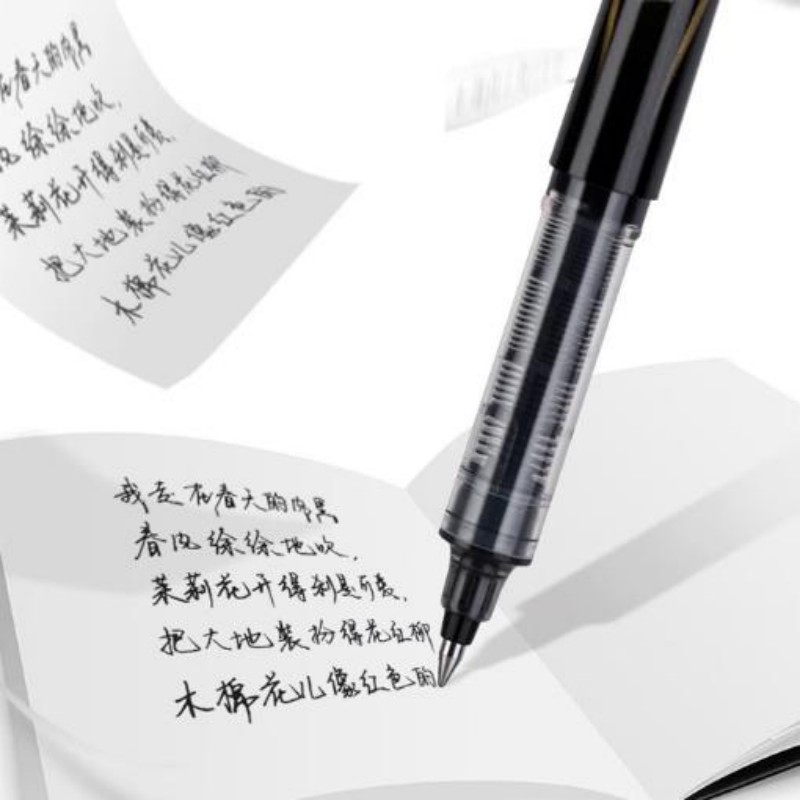 在春天的
风徐徐地吹,
茉莉花开得别是可爱,
把大地装扮得花红柳
木棉花儿像红色的
我走在春天的
春风徐徐地吹,
茉莉花开得别是可爱,
把大地装扮得花红柳
木棉花儿像红色的